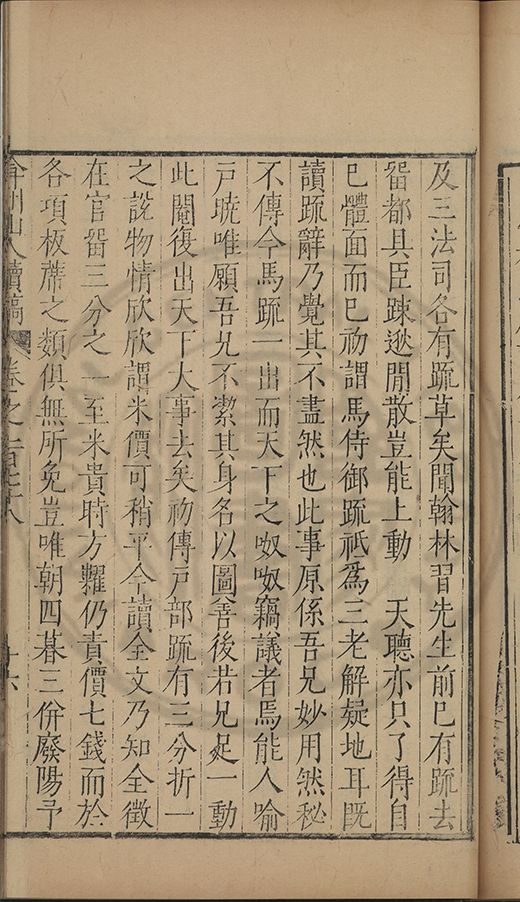 及三法司各有䟽草矣聞翰林習先生前已有䟽去
畱都具臣踈逖閒散豈能上動　天聽亦只了得自
已體面而已初謂馬侍御䟽祇爲三老解疑地耳旣
讀䟽辭乃覺其不盡然也此事原係吾兄妙用然秘
不傳今馬䟽一出而天下之呶呶竊議者焉能人喻
戸曉唯願吾兄不潔其身名以圖善後若兄足一動
此閹復出天下大事去矣初傳戸部䟽有三分折一
之說物情欣欣謂米價可稍平今讀全文乃知全徵
在官畱三分之一至米貴時方糶仍責價七錢而於
各項板蓆之類俱無所免豈唯朝四暮三併廢陽予
弇州山人續稿　卷之一百七十八　十六